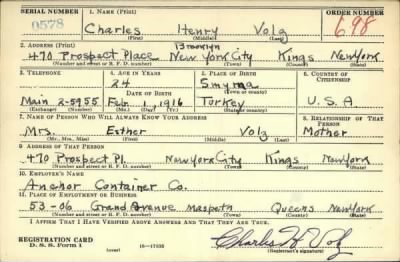 SERIAL NUMBER 1. NAME (Print) ORDER NUMBER
0578 Charles Henry Volz 698
(First) (Middle) (Last)
2. ADDRESS (Print)
Brooklyn
470 Prospect Place New York City Kings New York
(Number and street or R. F. D. number) (Town) (County) (State)
3. TELEPHONE 4. AGE IN YEARS 5. PLACE OF BIRTH 6. COUNTRY OF CITIZENSHIP
24 Smyrna
DATE OF BIRTH (Town or county)
Main 2-5955 Feb 1, 1916 Turkey U.S.A
(Exchange) (Number) (Mo.) (Day) (Yr.) (State or country)
7. NAME OF PERSON WHO WILL ALWAYS KNOW YOUR ADDRESS 8. RELATIONSHIP OF THAT PERSON
Mrs. Esther Volz Mother
(Mr., Mrs., Miss) (First) (Middle) (Last)
9. ADDRESS OF THAT PERSON
470 Prospect Pl. New York City Kings New York
(Number and street or R. F. D. number) (Town) (County) (State)
10. EMPLOYER'S NAME
Anchor Container Co.
11. PLACE OF EMPLOYMENT OR BUSINESS
53-06 Grand Avenue Maspeth Queens New York
(Number and street or R. F. D. number) (Town) (County) (State)
I AFFIRM THAT I HAVE VERIFIED ABOVE ANSWERS AND THAT THEY ARE TRUE.
REGISTRATION CARD
D. S. S. Form 1 (over) 16—17105 Charles H. Volz
(Registrant's signature)